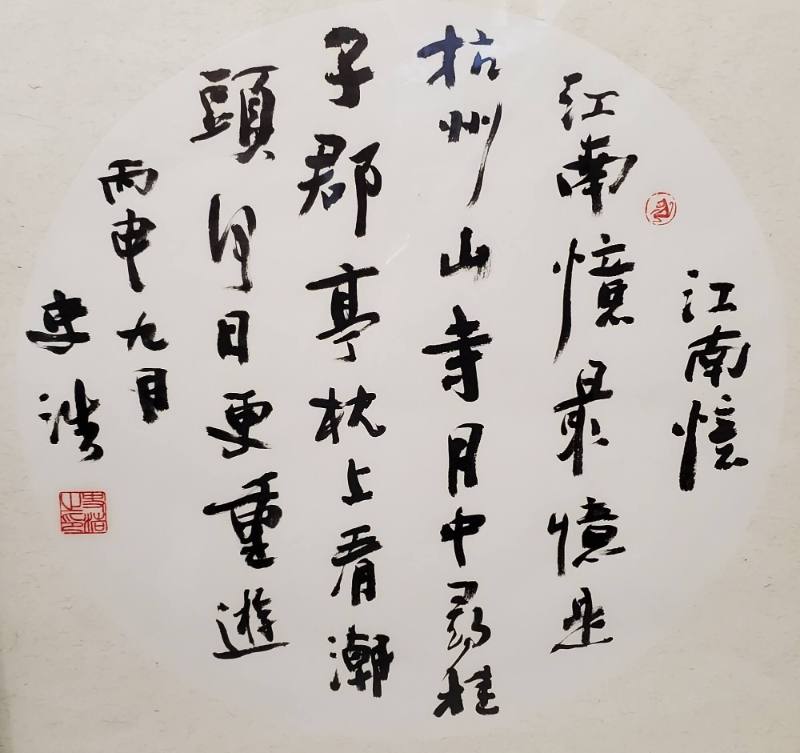 江南憶
江南憶最憶是
杭州山寺月中尋桂
子郡亭枕上看潮
頭何日更重遊
丙申九月
浩